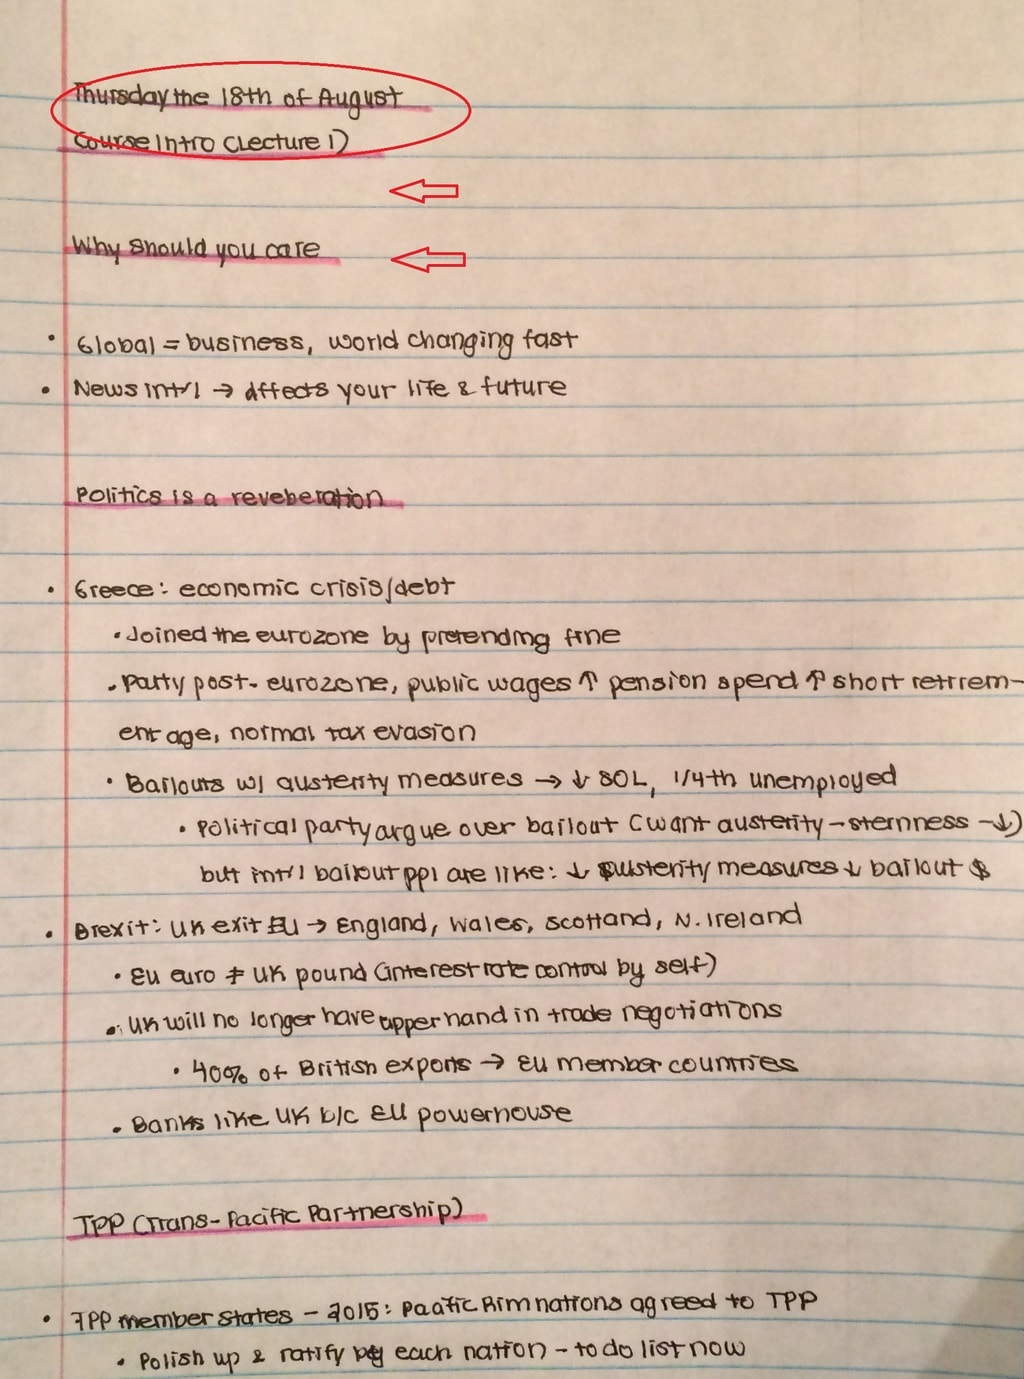 Thursday the 18th of August
Course Intro (Lecture 1)
Why should you care
• Global = business, world changing fast
• News int'l → affects your life & future
Politics is a reveberation
• Greece: economic crisis/debt
• Joined the eurozone by pretending fine
• Party post-eurozone, public wages ↑ pension spend ↑ short retirem-
ent age, normal tax evasion
• Bailouts w/ austerity measures → ↓ SOL, 1/4th unemployed
• Political party argue over bailout (want austerity-sternness →↓)
but int'l bailout ppl are like: ↓ austerity measures ↓ bailout $
• Brexit: UK exit EU → England, Wales, Scotland, N. Ireland
• EU euro ≠ UK pound (interest rate control by self)
• UK will no longer have upper hand in trade negotiations
• 40% of British exports → EU member countries
• Banks like UK b/c EU powerhouse
TPP (Trans-Pacific Partnership)
• TPP member states - 2015: Pacific Rim nations agreed to TPP
• Polish up & ratify by each nation - to do list now